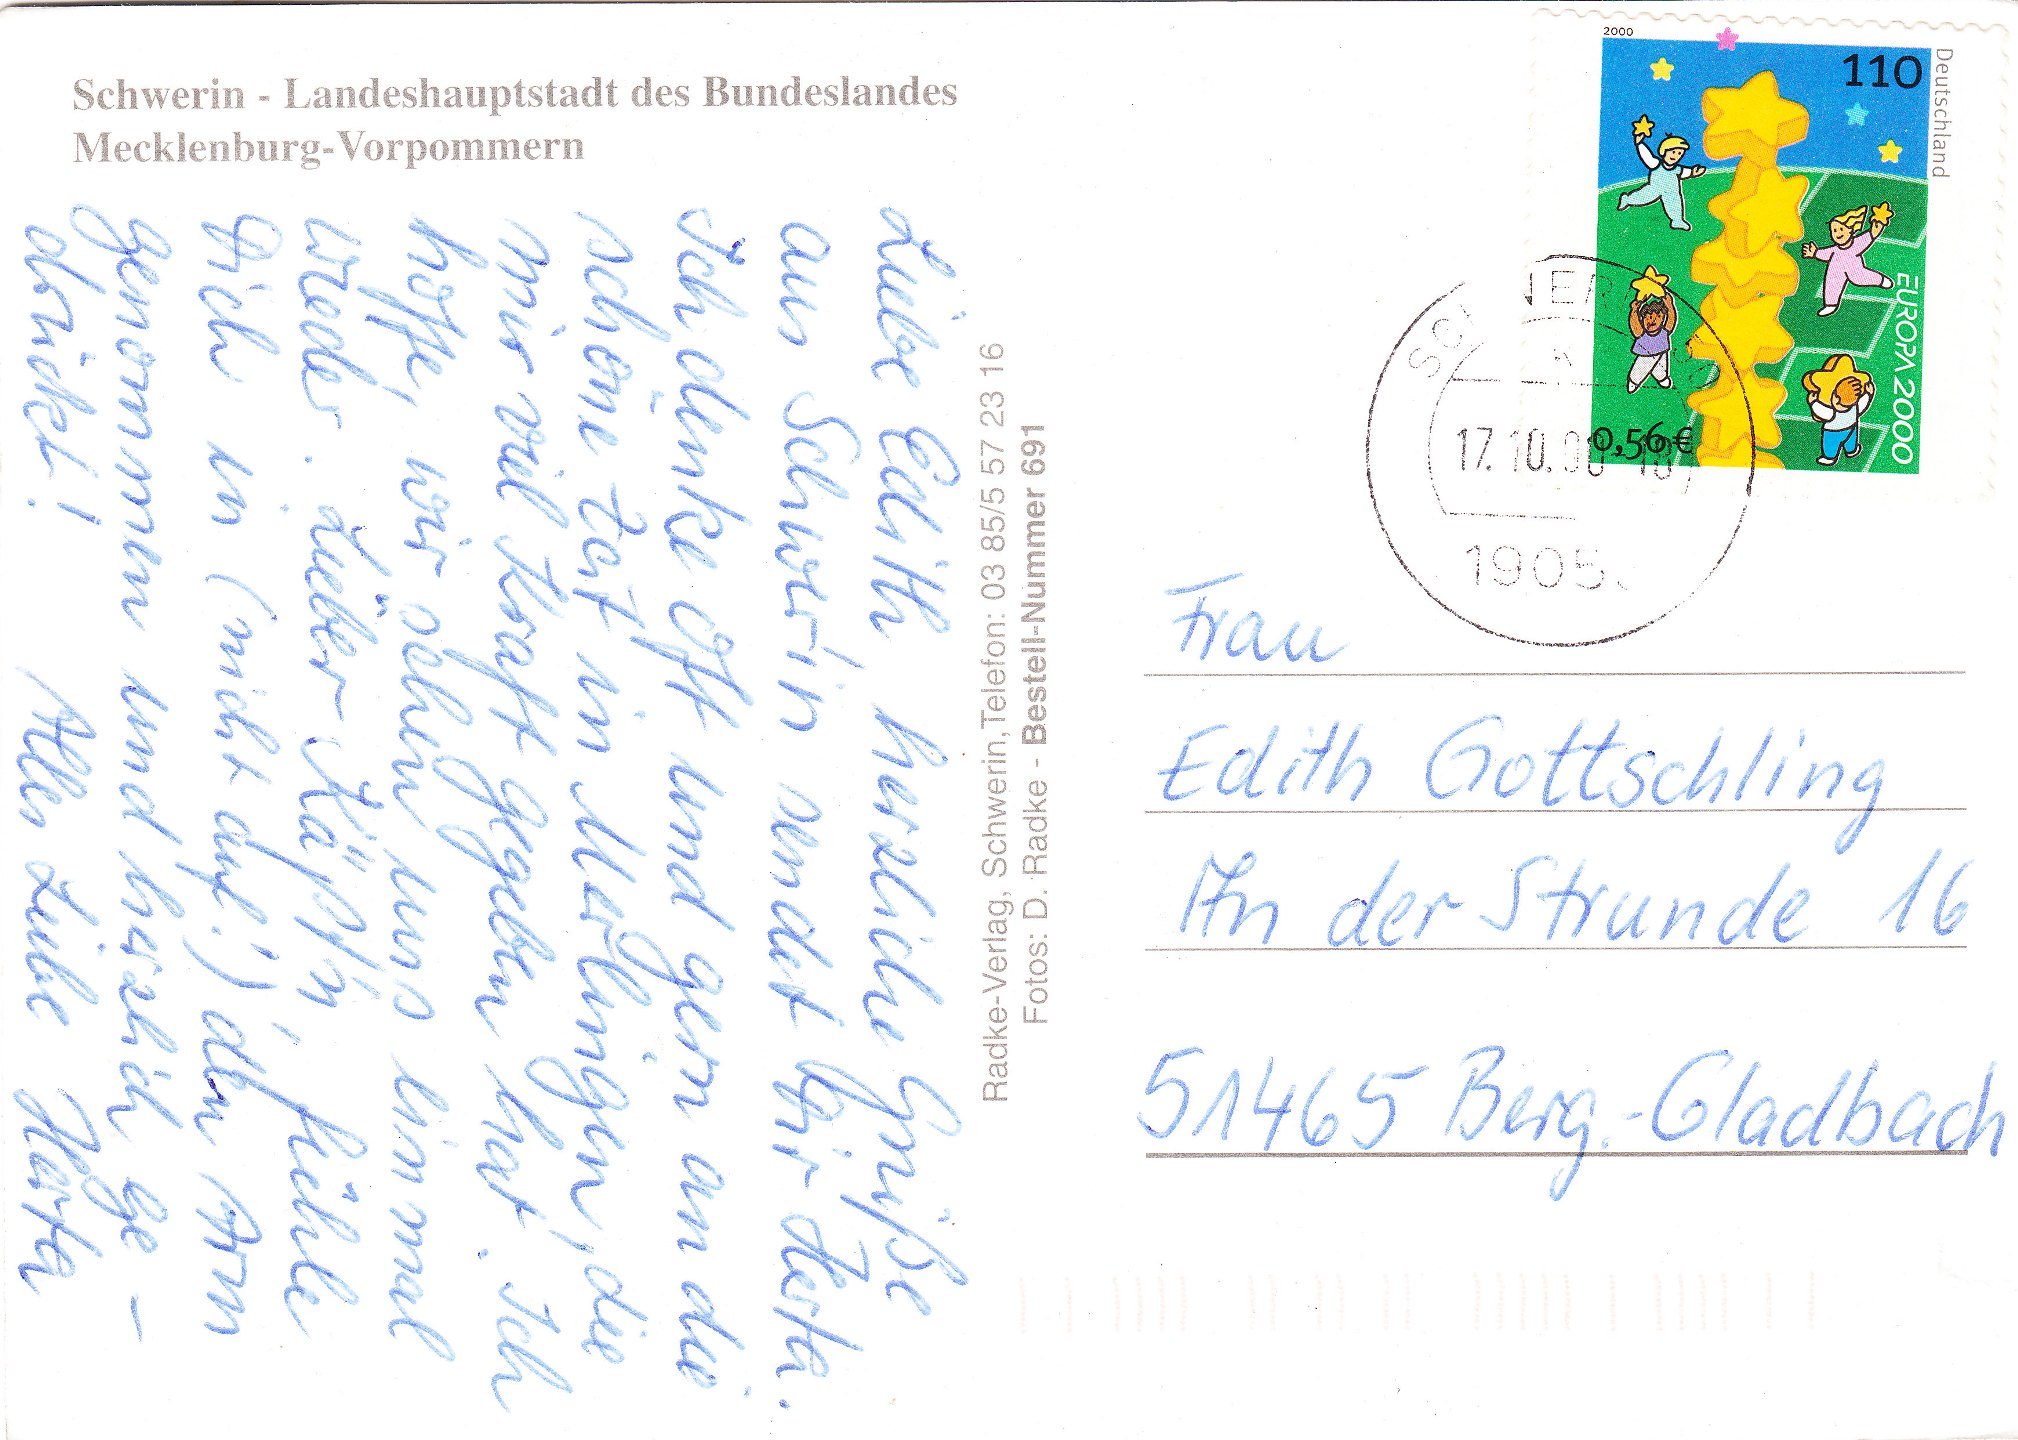 Schwerin - Landeshauptstadt des Bundeslandes
Mecklenburg-Vorpommern
Liebe Edith, herzliche Grüße
aus Schwerin sendet Dir Herta.
Ich denke oft und gern an die
schöne Zeit in Usslingen, die
mir viel Kraft gegeben hat. Ich
hoffe, wir sehen uns einmal
wieder. Lieber Käpt'n, fühle
Dich in (nicht auf!) den Arm
genommen und herzlich ge-
drückt! Alles Liebe Herta
Radke-Verlag, Schwerin, Telefon: 03 85/5 57 23 16
Fotos: D. Radke - Bestell-Nummer 691
2000
110
Deutschland
EUROPA 2000
0,56€
17.10.
1905
Frau
Edith Gottschling
An der Strunde 16
51465 Berg.-Gladbach